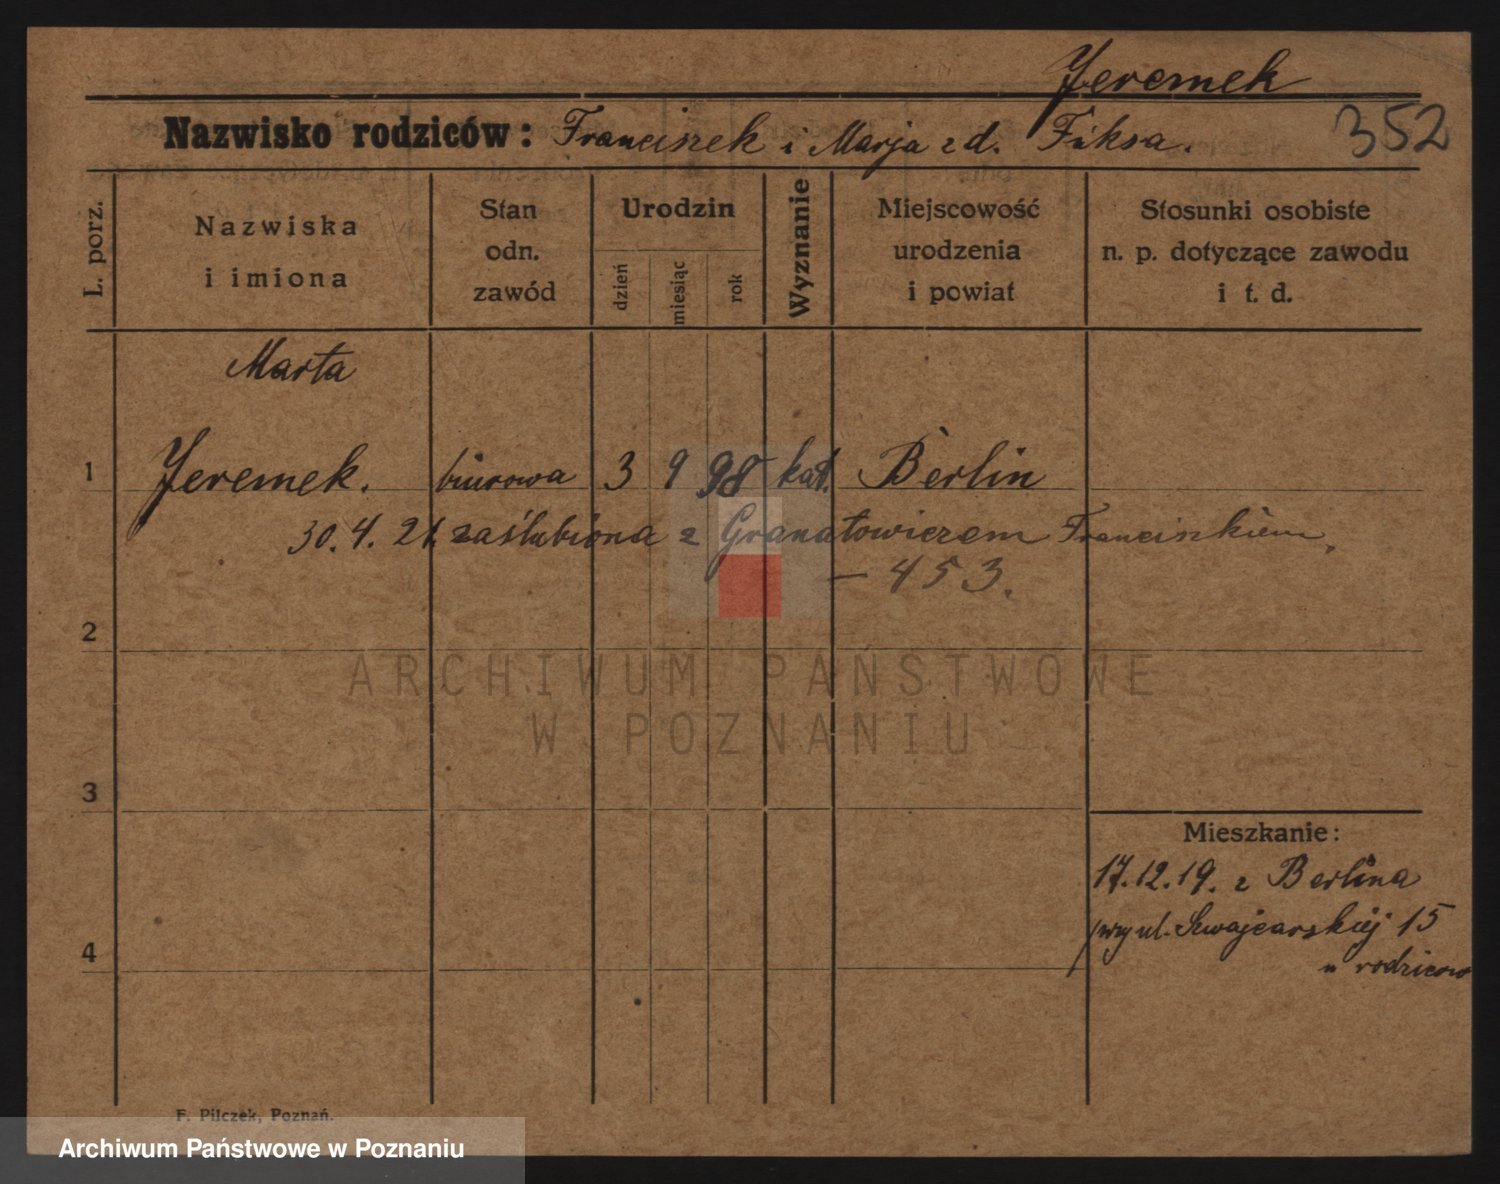 Jeremek
Nazwisko rodziców: Franciszek i Marja z d. Fiksa.
352
L. porz.
Nazwiska
i imiona
Stan
odn.
zawód
Urodzin
dzień
miesiąc
rok
Wyznanie
Miejscowość
urodzenia
i powiat
Stosunki osobiste
n. p. dotyczące zawodu
i t. d.
Marta
1 Jeremek. biurowa 3 9 98 kat. Berlin
30. 4. 21. zaślubiona z Granatowiczem Franciszkiem,
— 453.
2
ARCHIWUM PAŃSTWOWE
W POZNANIU
3
Mieszkanie:
17.12.19. z Berlina
przy ul. Szwajcarskiej 15
u rodziców
4
F. Pilczek, Poznań.
Archiwum Państwowe w Poznaniu